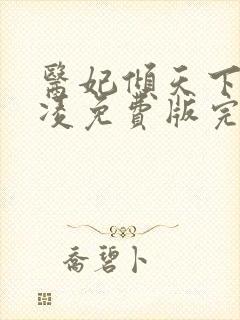 醫妃傾天下
凌免費版完
喬碧卜